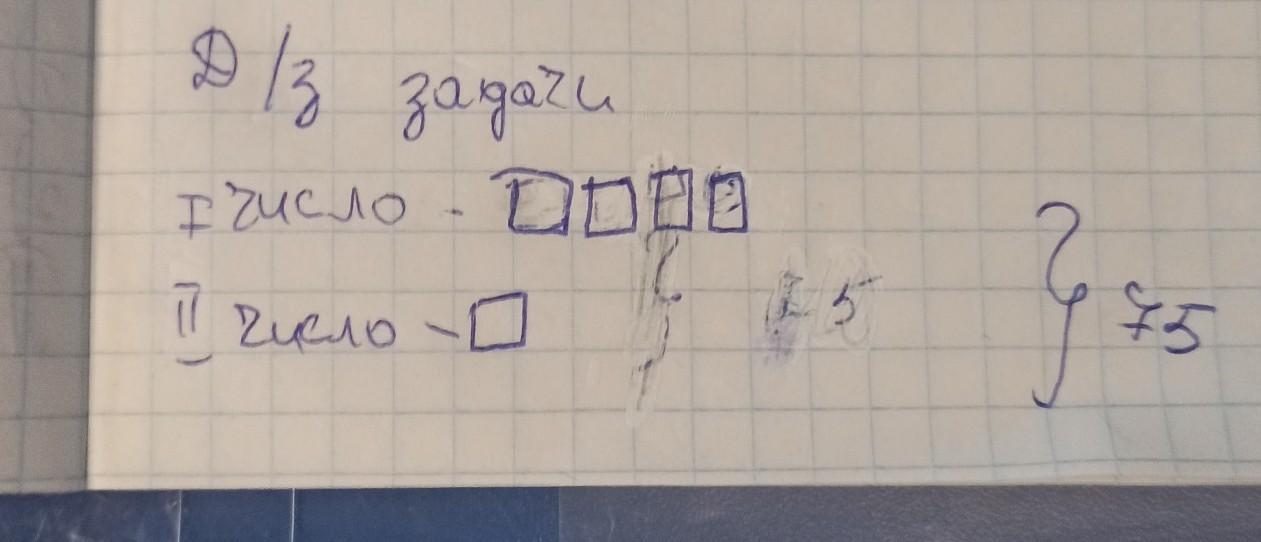 Д/з задачи
I число - □□□□
II число - □ } 75